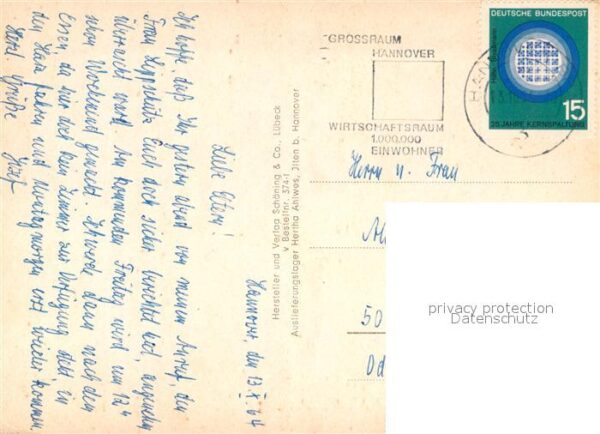 GROSSRAUM
HANNOVER
WIRTSCHAFTSRAUM
1.000.000
EINWOHNER
DEUTSCHE BUNDESPOST
15
25 JAHRE KERNSPALTUNG
Herrn u. Frau
50
privacy protection
Datenschutz
Hersteller und Verlag Schöning & Co., Lübeck
v Bestellnr. 374-1
Auslieferungslager Hertha Ahlwes, Ilten b. Hannover
Hannover, den 13.
Liebe Eltern!
Ich hoffe, daß Ihr gestern abend von meinem Anruf, den
Frau Euch doch sicher berichtet hat, angenehm
überrascht wart. Am kommenden Freitag wird um 12
Uhr Wochenend gemacht. Ich werde dann nach dem
Essen da hier doch kein Zimmer zur Verfügung steht, in
den Harz fahren und Montagmorgen erst wieder kommen.
Herzl. Grüße